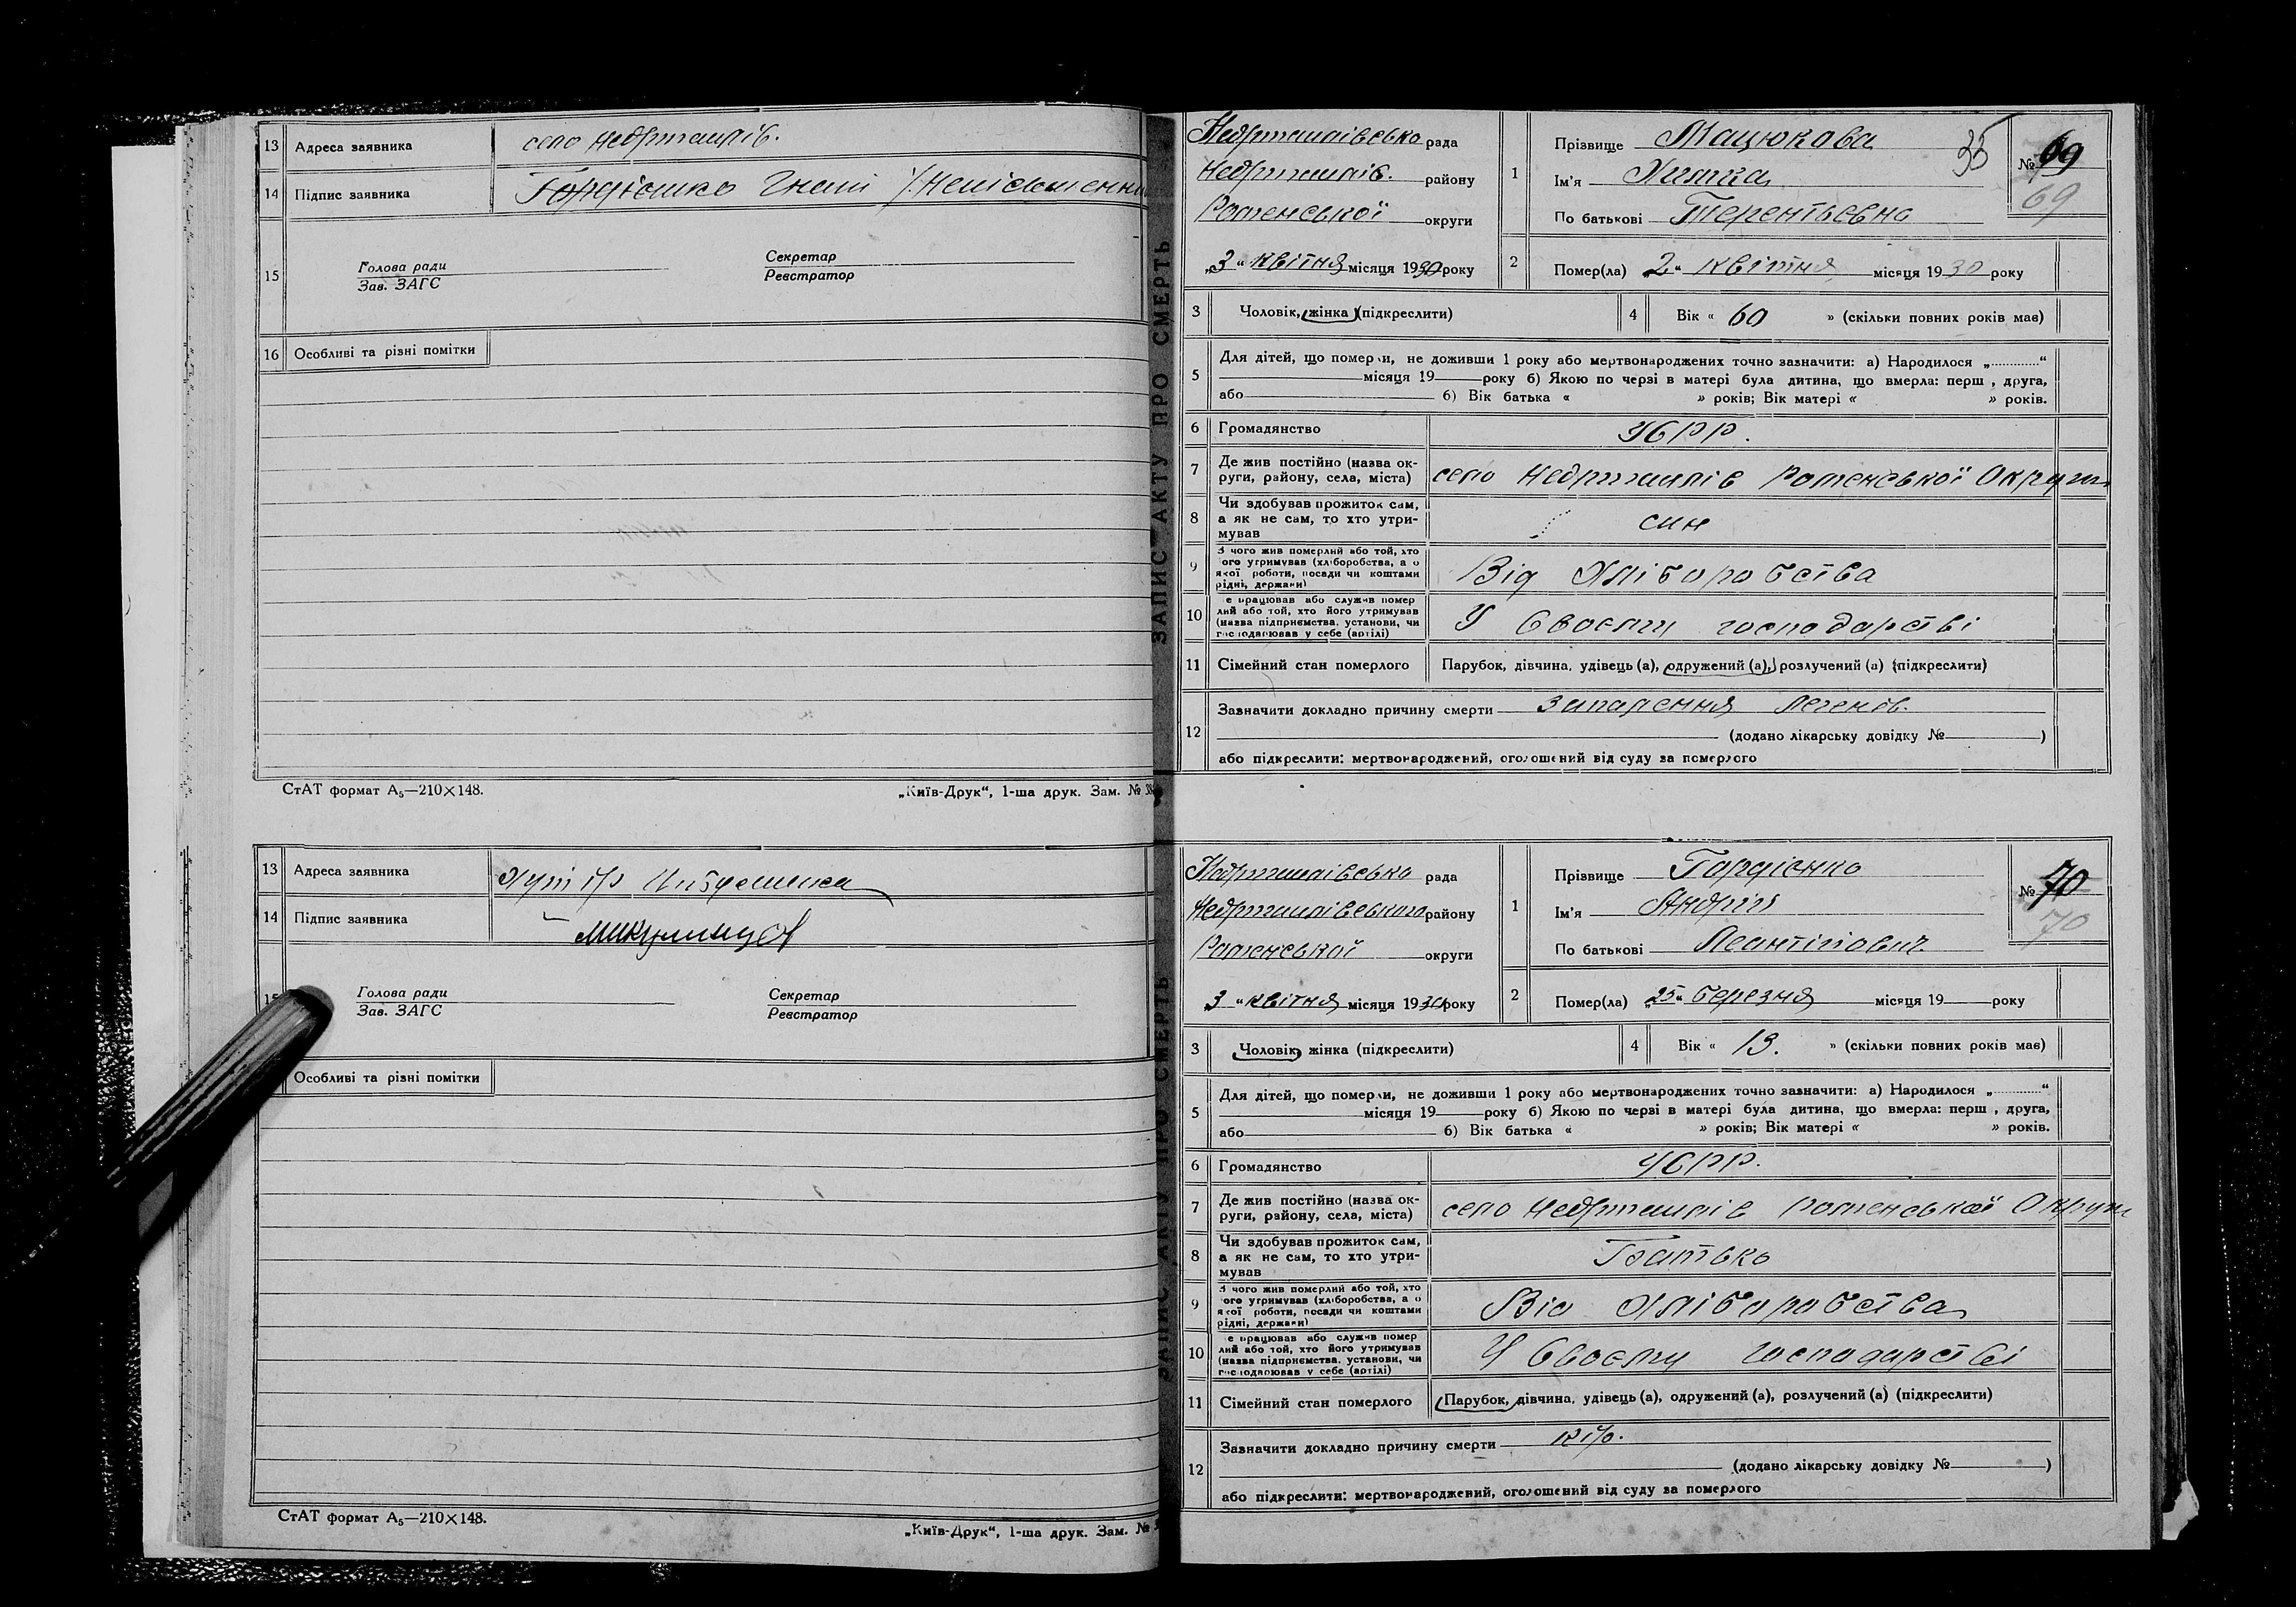 13 Адреса заявника село Недригайлів.
14 Підпис заявника Гордієнко Гнат /Неписьменний
15 Голова ради
Зав. ЗАГС
Секретар
Реєстратор
16 Особливі та різні помітки
СтАТ формат А₅—210×148.
„Київ-Друк“, 1-ша друк. Зам. №
13 Адреса заявника
14 Підпис заявника
15 Голова ради
Зав. ЗАГС
Секретар
Реєстратор
Особливі та різні помітки
СтАТ формат А₅—210×148.
„Київ-Друк“, 1-ша друк. Зам. №
ЗАПИС АКТУ ПРО СМЕРТЬ
Недригайлівська рада
Недригайлів. району
Роменської округи
„3“ квітня місяця 1930 року
1 Прізвище Мацюкова
Ім'я Химка
По батькові Терентьєвна
35
№ 69
69
2 Помер(ла) „2“ квітня місяця 1930 року
3 Чоловік, жінка (підкреслити)
4 Вік « 60 » (скільки повних років має)
5 Для дітей, що померли, не доживши 1 року або мертвонароджених точно зазначити: а) Народилося „............“
місяця 19 року б) Якою по черзі в матері була дитина, що вмерла: перш , друга,
або б) Вік батька « » років; Вік матері « » років.
6 Громадянство УСРР.
7 Де жив постійно (назва ок-
руги, району, села, міста) село Недригайлів Роменської Округи
8 Чи здобував прожиток сам,
а як не сам, то хто утри-
мував син
9 З чого жив померлий або той, хто
ого утримував (хліборобства, а о
якої роботи, посади чи коштами
рідні, держави) Від Хліборобства
10 е працював або служив помер
лий або той, хто його утримував
(назва підприємства, установи, чи
господарював у себе (артілі) У Своєму господарстві
11 Сімейний стан померлого Парубок, дівчина, удівець (а), одружений (а), розлучений (а) (підкреслити)
12 Зазначити докладно причину смерти Запалення Легенів.
(додано лікарську довідку № )
або підкреслити: мертвонароджений, оголошений від суду за померлого
Недригайлівська рада
Недригайлівського району
Роменської округи
3 “ квітня місяця 1930 року
1 Прізвище Гордієнко
Ім'я Андрій
По батькові Леонтійович.
№ 70
70
2 Помер(ла) „25“ березня місяця 19 року
3 Чоловік, жінка (підкреслити)
4 Вік « 13. » (скільки повних років має)
5 Для дітей, що померли, не доживши 1 року або мертвонароджених точно зазначити: а) Народилося „............“
місяця 19 року б) Якою по черзі в матері була дитина, що вмерла: перш , друга,
або б) Вік батька « » років; Вік матері « » років.
6 Громадянство УСРР.
7 Де жив постійно (назва ок-
руги, району, села, міста) село Недригайлів Роменської Округи
8 Чи здобував прожиток сам,
а як не сам, то хто утри-
мував Батько
9 З чого жив померлий або той, хто
ого утримував (хліборобства, а о
якої роботи, посади чи коштами
рідні, держави) Від Хліборобства
10 е працював або служив помер
лий або той, хто його утримував
(назва підприємства, установи, чи
господарював у себе (артілі) У Своєму господарстві
11 Сімейний стан померлого Парубок, дівчина, удівець (а), одружений (а), розлучений (а) (підкреслити)
12 Зазначити докладно причину смерти Кір.
(додано лікарську довідку № )
або підкреслити: мертвонароджений, оголошений від суду за померлого
ЗАПИС АКТУ ПРО СМЕРТЬ